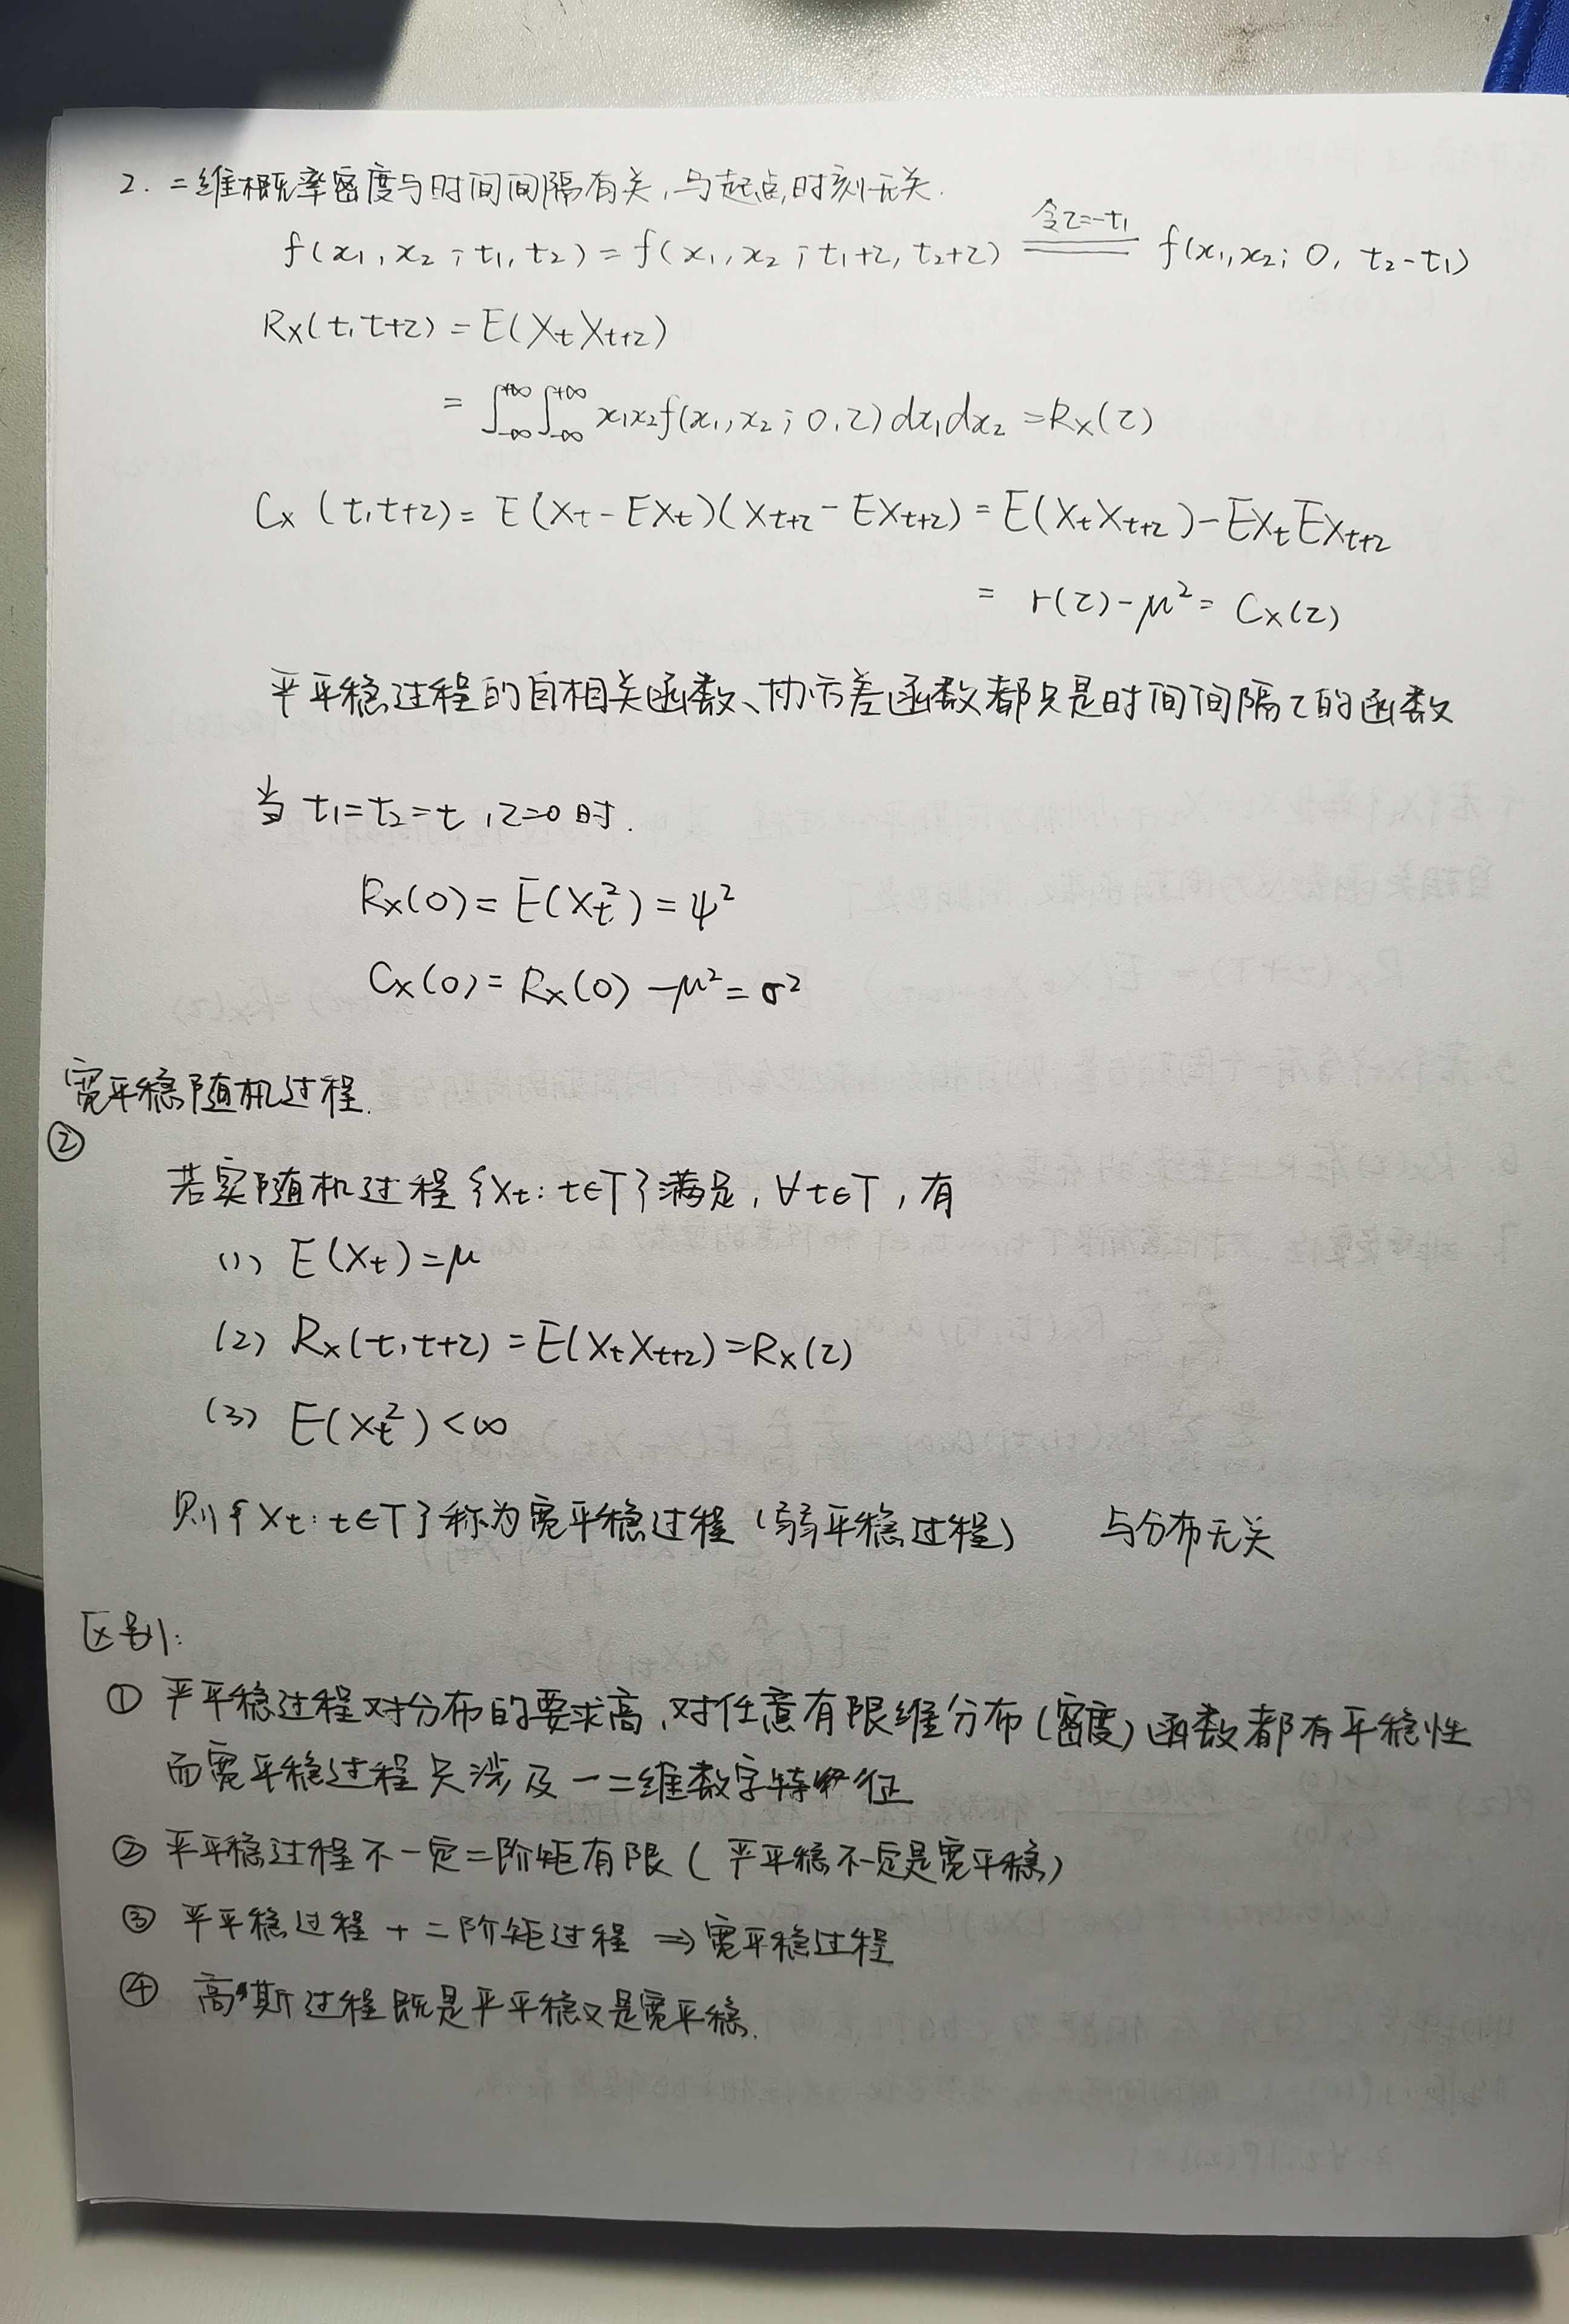 2. 二维概率密度与时间间隔有关,与起点时刻无关.
f(x₁,x₂;t₁,t₂)=f(x₁,x₂;t₁+τ,t₂+τ) 令τ=-t₁ ═══ f(x₁,x₂;0,t₂-t₁)
Rx(t,t+τ)=E(XtXt+τ)
=∫₋∞⁺∞∫₋∞⁺∞ x₁x₂f(x₁,x₂;0,τ)dx₁dx₂=Rx(τ)
Cx(t,t+τ)=E(Xt-EXt)(Xt+τ-EXt+τ)=E(XtXt+τ)-EXtEXt+τ
= r(τ)-μ²=Cx(τ)
严平稳过程的自相关函数、协方差函数都只是时间间隔τ的函数
当t₁=t₂=t,τ=0时.
Rx(0)=E(Xt²)=ψ²
Cx(0)=Rx(0)-μ²=σ²
宽平稳随机过程.
②
若实随机过程{Xt:t∈T}满足,∀t∈T,有
(1) E(Xt)=μ
(2) Rx(t,t+τ)=E(XtXt+τ)=Rx(τ)
(3) E(Xt²)<∞
则{Xt:t∈T}称为宽平稳过程(弱平稳过程) 与分布无关
区别:
① 严平稳过程对分布的要求高,对任意有限维分布(密度)函数都有平稳性
而宽平稳过程只涉及一二维数字特征
② 严平稳过程不一定二阶矩有限(严平稳不一定是宽平稳)
③ 严平稳过程+二阶矩过程⇒宽平稳过程
④ 高斯过程既是严平稳又是宽平稳.